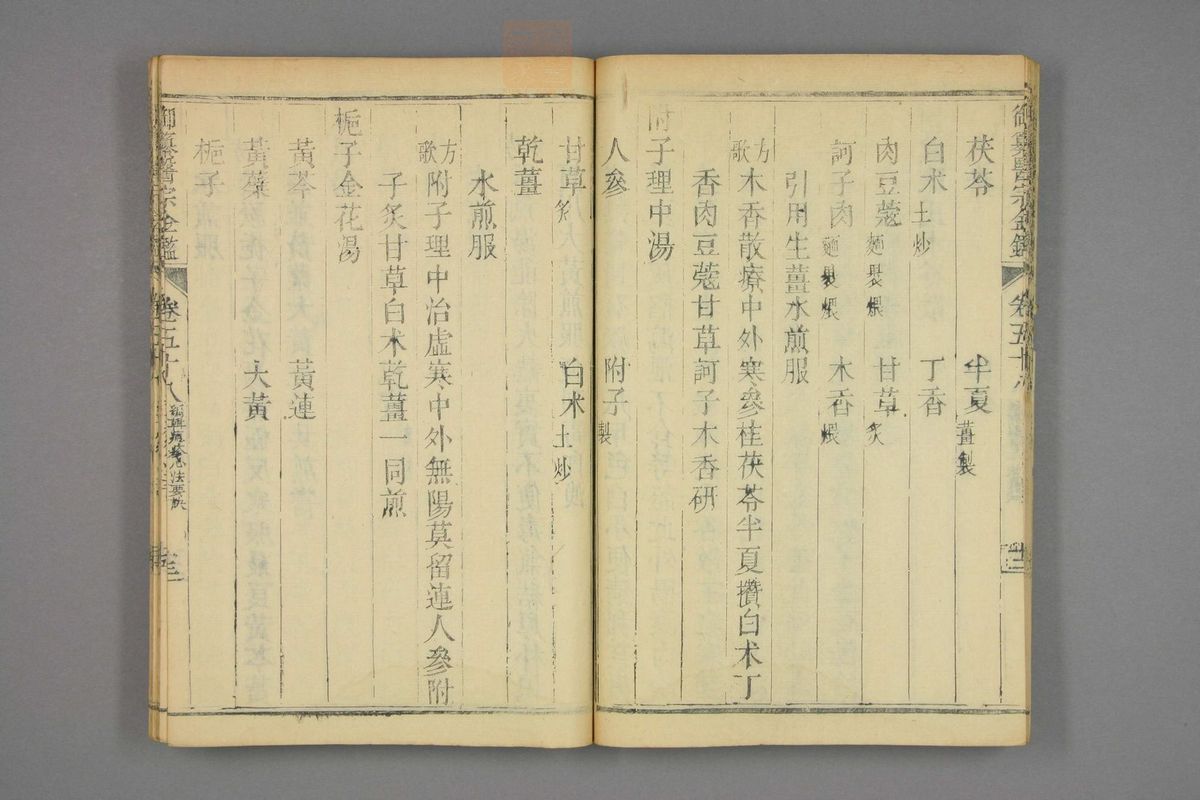 御纂醫宗金鑑 卷五十八
茯苓 半夏薑製
白术土炒 丁香
肉豆蔻麵裹煨 甘草炙
訶子肉麵裹煨 木香煨
引用生薑水煎服
方歌 木香散療中外寒參桂茯苓半夏攢白术丁
香肉豆蔻甘草訶子木香研
附子理中湯
人參 附子製
甘草炙 白术土炒
乾薑
水煎服
方歌 附子理中治虛寒中外無陽莫留連人參附
子炙甘草白术乾薑一同煎
梔子金花湯
黃芩 黃連
黃蘗 大黃
梔子
御纂醫宗金鑑 卷五十八 編輯痘疹心法要訣